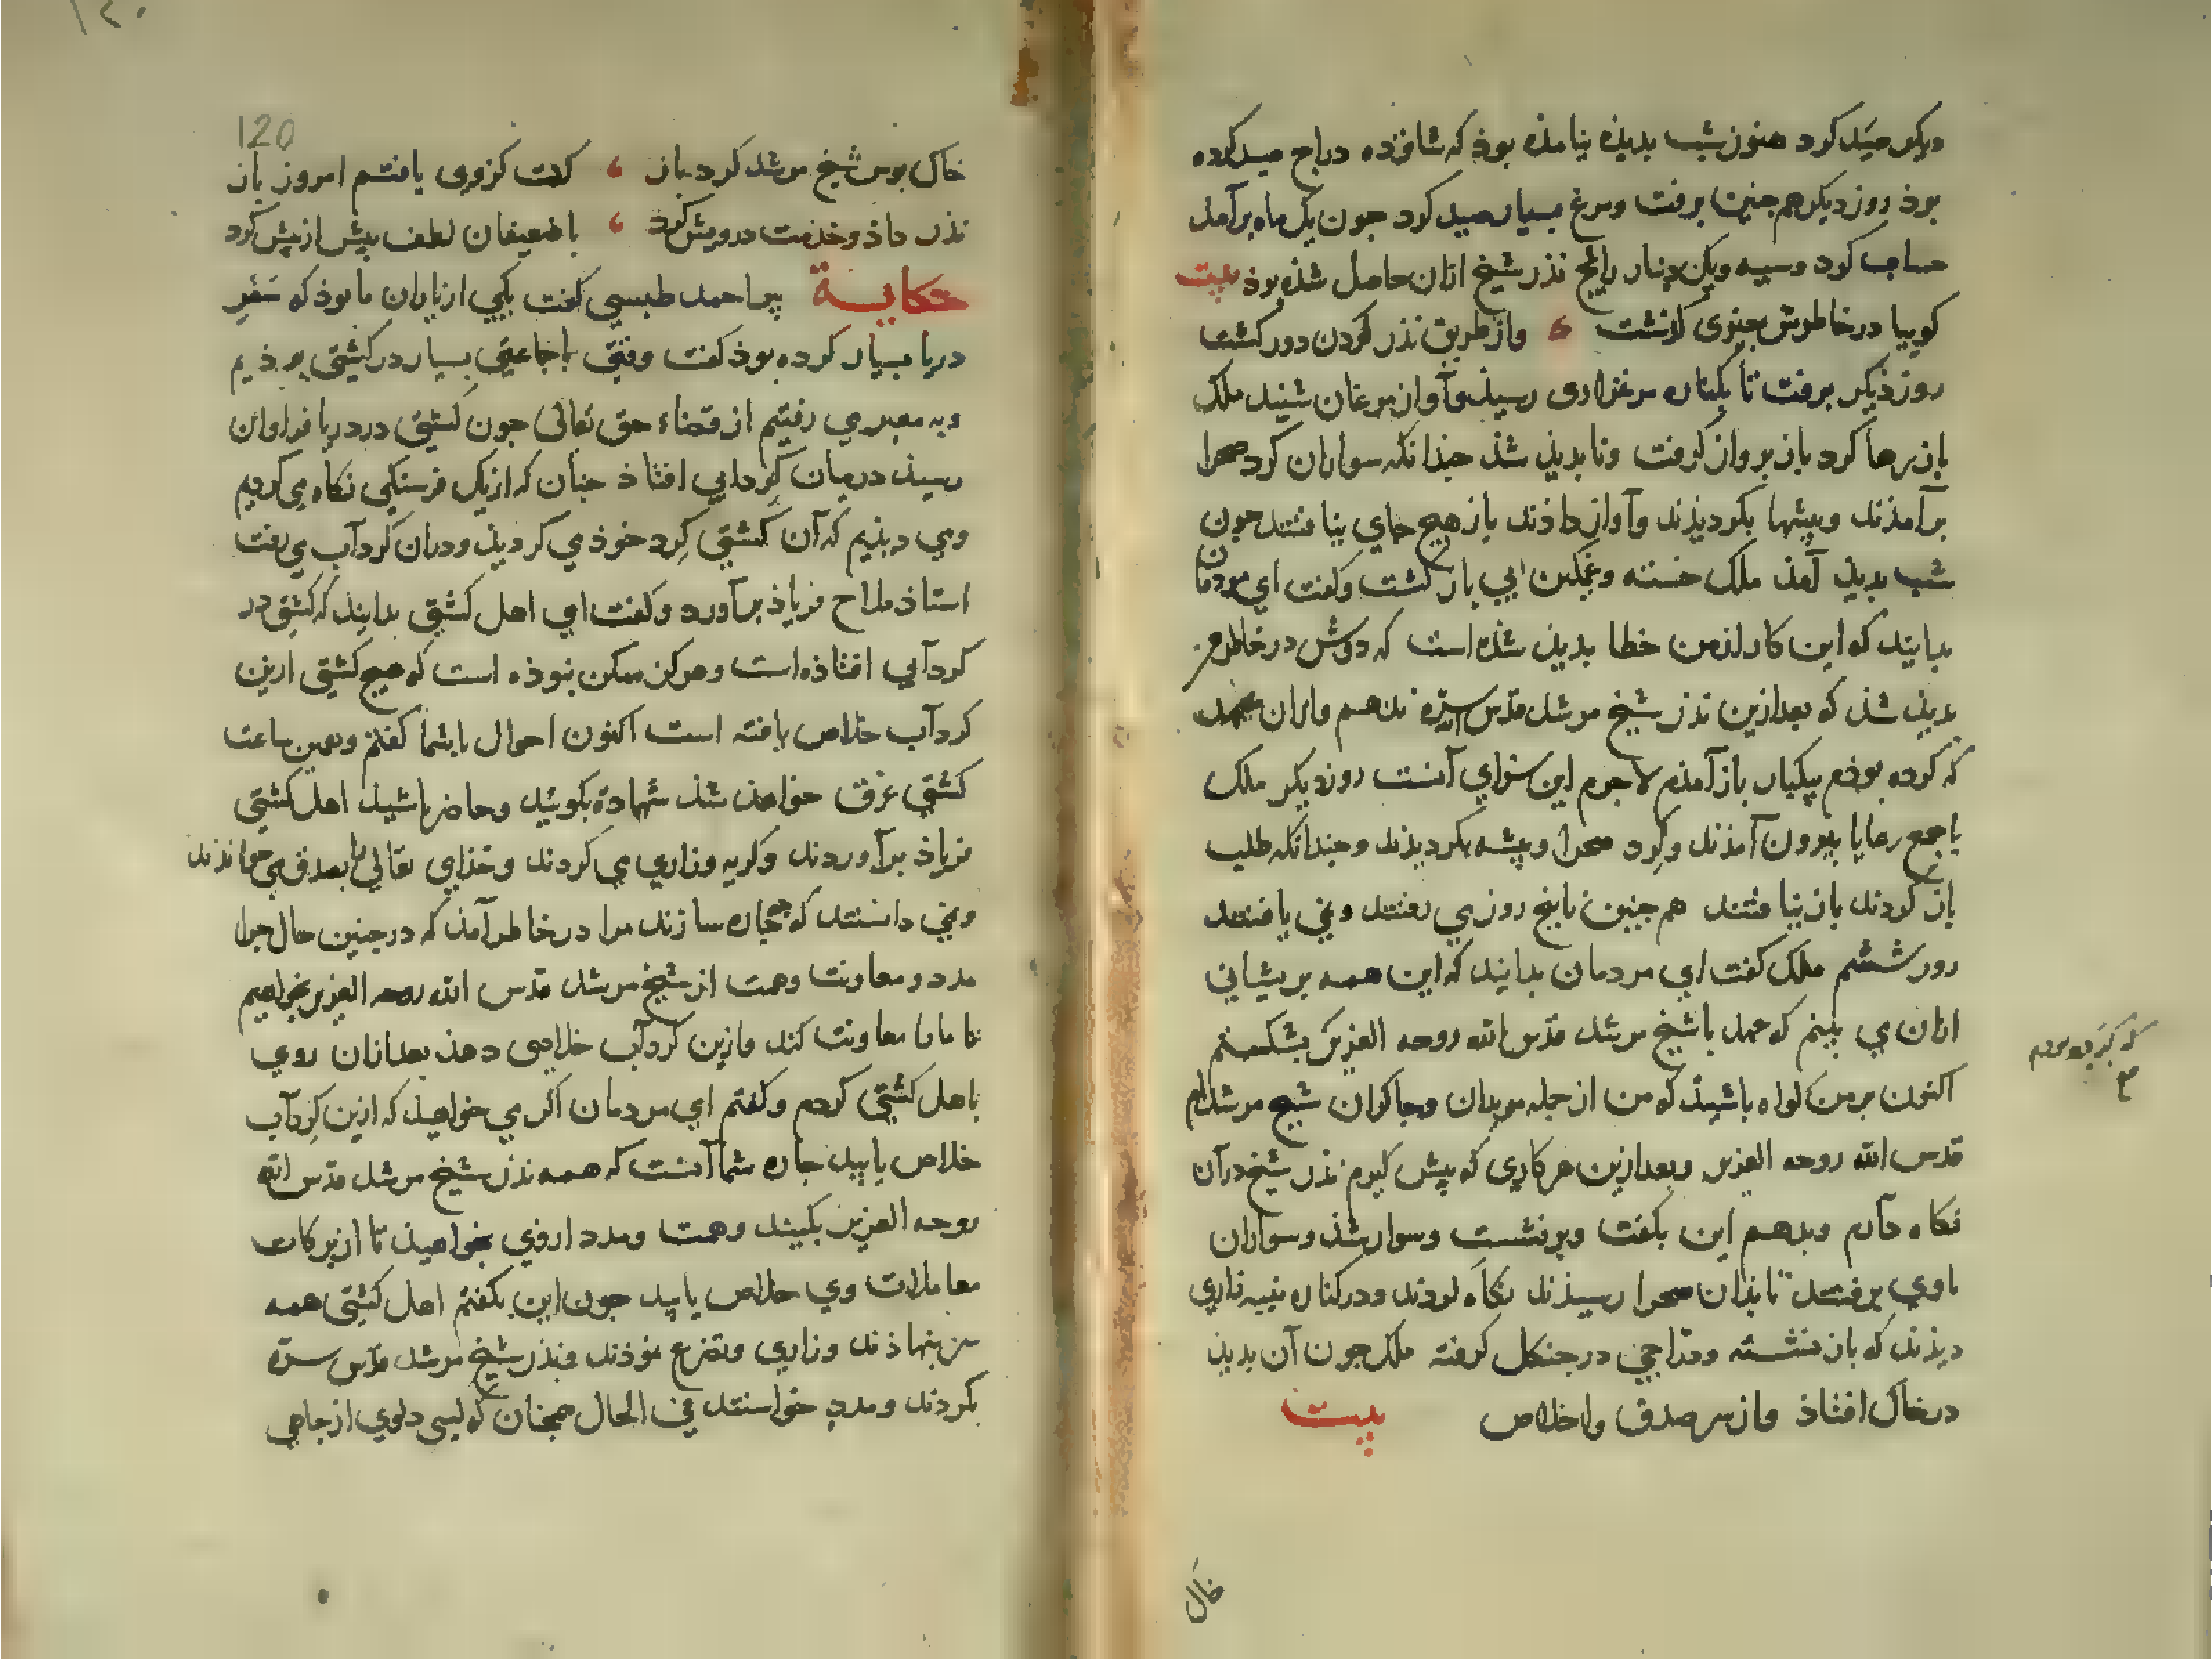 دیکر صید کرد هنوز شب بدیذه نیامذه بوذ که شانزده دراج صید کرده
بوذ روز دیکر هم جنین برفت ومرغ بسیار صید کرد جون یک ماه برآمد
حساب کرد وسیه ویک دینار رایج نذر شیخ ازان حاصل شذه بوذ بیت
کوییا در خاطرش جیزی کذشت وز طریق نذر کردن دور کشت
روز دیکر برفت تا بکناره مرغزاری رسیذ وآواز مرغان شنید ملک
باز رها کرد باز برواز کرفت ونا بدیذ شذ جندانکه سواران کرد صحرا
برآمذند وبیشها بکردیذند وآواز داذند باز هیج جای نیافتند جون
شب بدیذ آمذ ملک خسته وغمکین ابی باز کشت وکفت ای مردمان
بدانید که این کار از من خطا بدیذ شذه است که دوش در خاطرم
بدیذ شذ که بعد ازین نذر شیخ مرشد قدس سره ندهم وازان عهد
که کرده بوذم بیکبار باز آمذم لاجرم این سزای آنست روز دیکر ملک
با جمع رعایا بیرون آمذند وکرد صحرا وبیشه بکردیذند وجندانکه طلب
باز کردند باز نیافتند هم جنین تا بنج روز می رفتند ونمی یافتند
روز ششم ملک کفت ای مردمان بدانید که این همه بریشانی
ازان می بینم که عهد با شیخ مرشد قدس الله روحه العزیز بشکستم
که کرده بودم
اکنون بر من کواه باشیذ که من از جمله مریدان وجاکران شیخ مرشدام
قدس الله روحه العزیز وبعد ازین هر کاری که بیش کیرم نذر شیخ در آن
نکاه دارم وبدهم این بکفت وبرنشست وسوار شذ وسواران
با وی برفتند تا بذان صحرا رسیذند نکاه کردند ودر کناره
دیذند که باز نشسته ودراجی در جنکل کرفته ملک جون آن بدید
در خاک افتاذ واز سر صدق واخلاص بیت
خاک
120
خاک بوس شیخ مرشد کرد باز کفت کزوی یافتم امروز باز
نذر داذ وخذمت درویش کرد با ضعیفان لطف بیش از بیش کرد
حکایة بیر احمد طبسی کفت یکی از یاران ما بوذ که سفر
دریا بسیار کرده بوذ کفت وقتی با جماعتی بسیار در کشتی بوذیم
وبه معبر می رفتیم از قضاء حق تعالی جون کشتی در دریا فراوان
رسیذ در میان کردابی افتاذ جنان که از یک فرسنکی نکاه می کردیم
ومی دیذیم که آن کشتی کرد خوذ می کردیذ ودران کردآب می رفت
استاذ ملاح فریاذ برآورد وکفت ای اهل کشتی بدانید که کشتی در
کردآبی افتاذه است وهرکز ممکن نبوذه است که هیج کشتی ازین
کردآب خلاص یافته است اکنون احوال باشما کفتم وهمین ساعت
کشتی غرق خواهذ شذ شهادة بکویید وحاضر باشید اهل کشتی
فریاذ برآوردند وکریه وزاری می کردند وخذای تعالی را بصدق می خواندند
ونمی دانستند که جه جاره سازند مرا در خاطر آمذ که در جنین حال جرا
مدد ومعاونت وهمت از شیخ مرشد قدس الله روحه العزیز نخواهیم
تا مارا معاونت کند وازین کردآب خلاصی دهذ بعد ازان روی
با اهل کشتی کردم وکفتم ای مردمان اکر می خواهید که ازین کردآب
خلاص یابید جاره شما آنست که همه نذر شیخ مرشد قدس الله
روحه العزیز بکنید وهمت ومدد ازوی بخواهید تا از برکات
معاملات وی خلاص یابید جون این بکفتم اهل کشتی همه
سر بنهاذند وزاری وتضرع نموذند ونذر شیخ مرشد قدس سره
بکردند ومدد خواستند فی الحال همجنان که کسی دلوی از جاهی